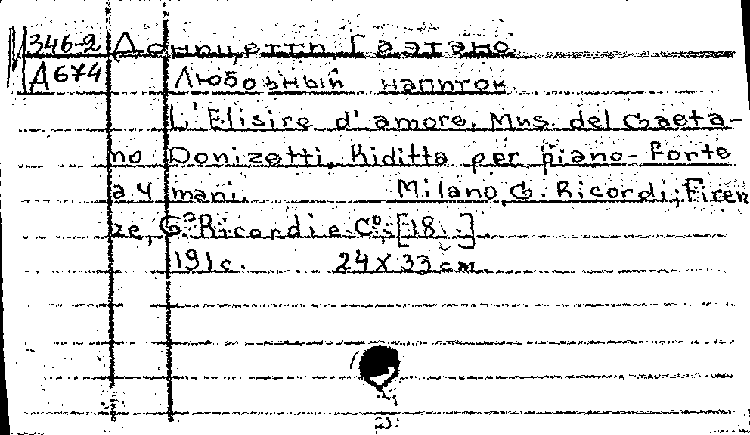 346-2 Доницетти, Гаэтано
Д674 Любовный напиток
L'Elisire d'amore. Mus. del Gaeta-
no Donizetti. Riditta per piano-forte
a 4 mani. Milano, G. Ricordi; Firen
ze, Gª Ricordi e Cº, [18 ]
191 с. 24X33 см.